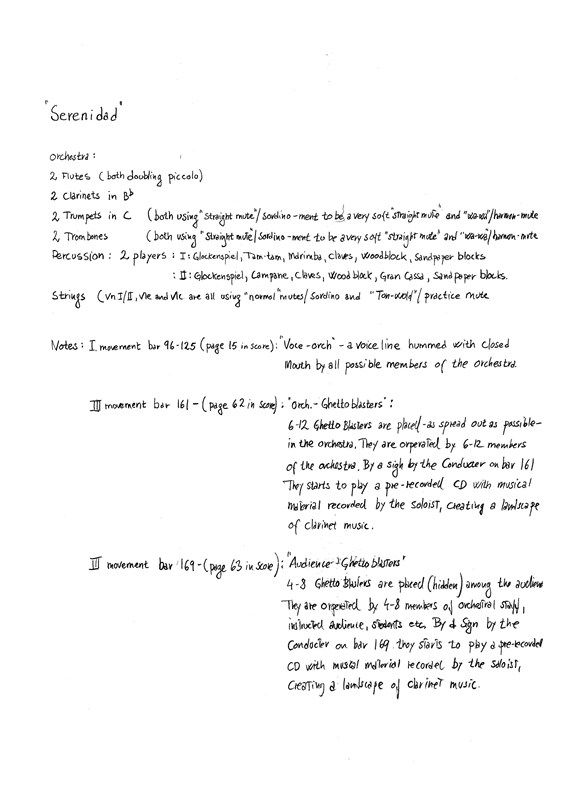 "Serenidad"
Orchestra:
2 Flutes (both doubling piccolo)
2 Clarinets in Bb
2 Trumpets in C (both using "straight mute"/sordino-ment to be a very soft "straight mute" and "wa-wa"/harmon-mute
2 Trombones (both using "straight mute"/sordino-ment to be a very soft "straight mute" and "wa-wa"/harmon-mute
Percussion: 2 players: I: Glockenspiel, Tam-tam, Marimba, Claves, Woodblock, Sandpaper blocks
: II: Glockenspiel, Campane, Claves, Wood block, Gran Cassa, Sandpaper blocks.
Strings (Vn I/II, Vle and Vlc are all using "normal" mutes/sordino and "Ton-wolf"/practice mute
Notes: I movement bar 96-125 (page 15 in score): "Voce-orch" - a voice line hummed with closed
mouth by all possible members of the orchestra.
III movement bar 161-(page 62 in score): "Orch.-Ghettoblasters":
6-12 Ghetto Blasters are placed-as spread out as possible-
in the orchestra. They are orperated by 6-12 members
of the orchestra. By a sign by the Conducter on bar 161
They starts to play a pre-recorded CD with musical
material recorded by the soloist, creating a landscape
of clarinet music.
III movement bar 169-(page 63 in score): "Audience-Ghettoblasters"
4-8 Ghetto Blasters are placed (hidden) among the audience
They are orperated by 4-8 members of orchestral staff,
instructed audience, students etc. By a Sign by the
Conducter on bar 169 they starts to play a pre-recorded
CD with musical material recordel by the soloist,
Creating a landscape of clarinet music.